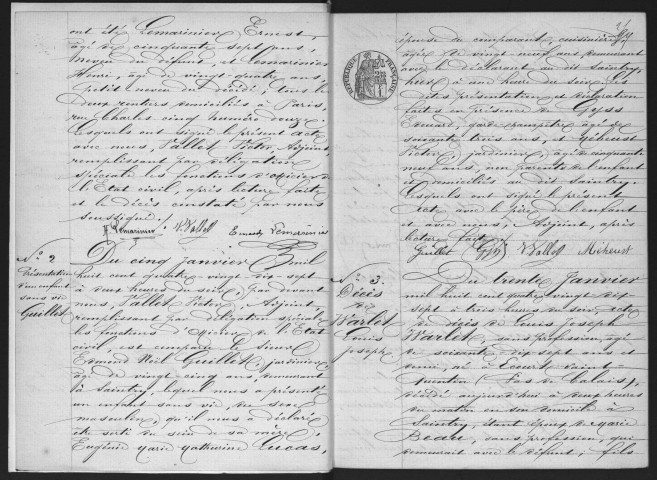 ont été Lemarinier Ernest,
âgé de cinquante sept ans,
neveu du défunt, et Lemarinier
Henri, âgé de vingt-quatre ans,
petit neveu du décédé, tous les
deux rentiers domiciliés à Paris,
rue Charles cinq numéro douze.
Lesquels ont signé le présent acte
avec nous, Vallet Victor, Adjoint,
remplissant par délégation
spéciale les fonctions d'officier de
l'Etat civil, après lecture faite
et le décès constaté par nous
soussigné./.
H Lemarinier V. Vallet Ernest Lemarinier
N° 2
Présentation
d'un enfant
sans vie
Guillet
Du cinq janvier mil
huit cent quatre-vingt dix sept
à deux heures du soir, par devant
nous, Vallet Victor, Adjoint,
remplissant par délégation spéciale
les fonctions d'officier de l'Etat
civil, est comparu le sieur
Ermond Noël Guillet, jardinier,
âgé de vingt-cinq ans, demeurant
à Saintry, lequel nous a présenté
un enfant sans vie, du sexe
masculin, qu'il nous a déclaré
être sorti du sein de sa mère,
Eugénie Marie Catherine Lucas,
REPUBLIQUE FRANÇAISE
épouse du comparant, cuisinière,
âgée de vingt neuf ans demeurant
avec le déclarant audit Saintry,
hier à une heure du soir. Les
dites présentation et déclaration
faites en présence de Gyss
Edouard, garde champêtre, âgé de
soixante trois ans, & Méheust
Victor, jardinier, âgé de cinquante
neuf ans, non parents de l'enfant
et domiciliés au dit Saintry.
Lesquels ont signé le présent
acte avec le père de l'enfant
et avec nous, Adjoint, après
lecture faite./.
Guillet Gyss V. Vallet Méheust
N° 3.
Décès
de
Warlet
Louis
Joseph.
Du trente janvier
mil huit cent quatre vingt dix
sept à trois heures du soir, acte
de décès de Louis Joseph
Warlet, sans profession, âgé
de soixante-dix-sept ans et
demi, né à Ecourt-Saint-
Quentin (Pas de Calais),
décédé aujourd'hui à deux heures
du matin en son domicile à
Saintry, étant époux de Marie
Beau, sans profession, qui
demeurait avec le défunt, fils